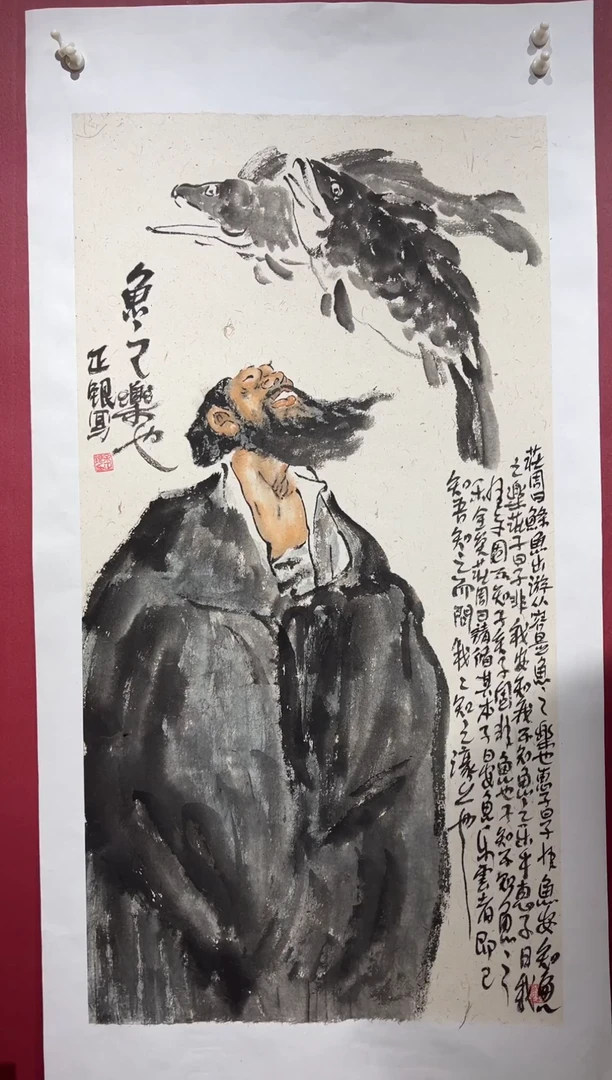 魚〻之樂也
正銀寫
莊周曰鯈魚出游从容是魚〻之樂也惠子曰子非魚安知魚
之樂莊子曰子非我安知我不知魚〻之乐乎惠子曰我
非子固不知子矣子固非魚也子不知魚〻之
乐全矣莊周曰請循其本子曰安魚乐雲者即已
知吾知之而問我〻知之濠上也